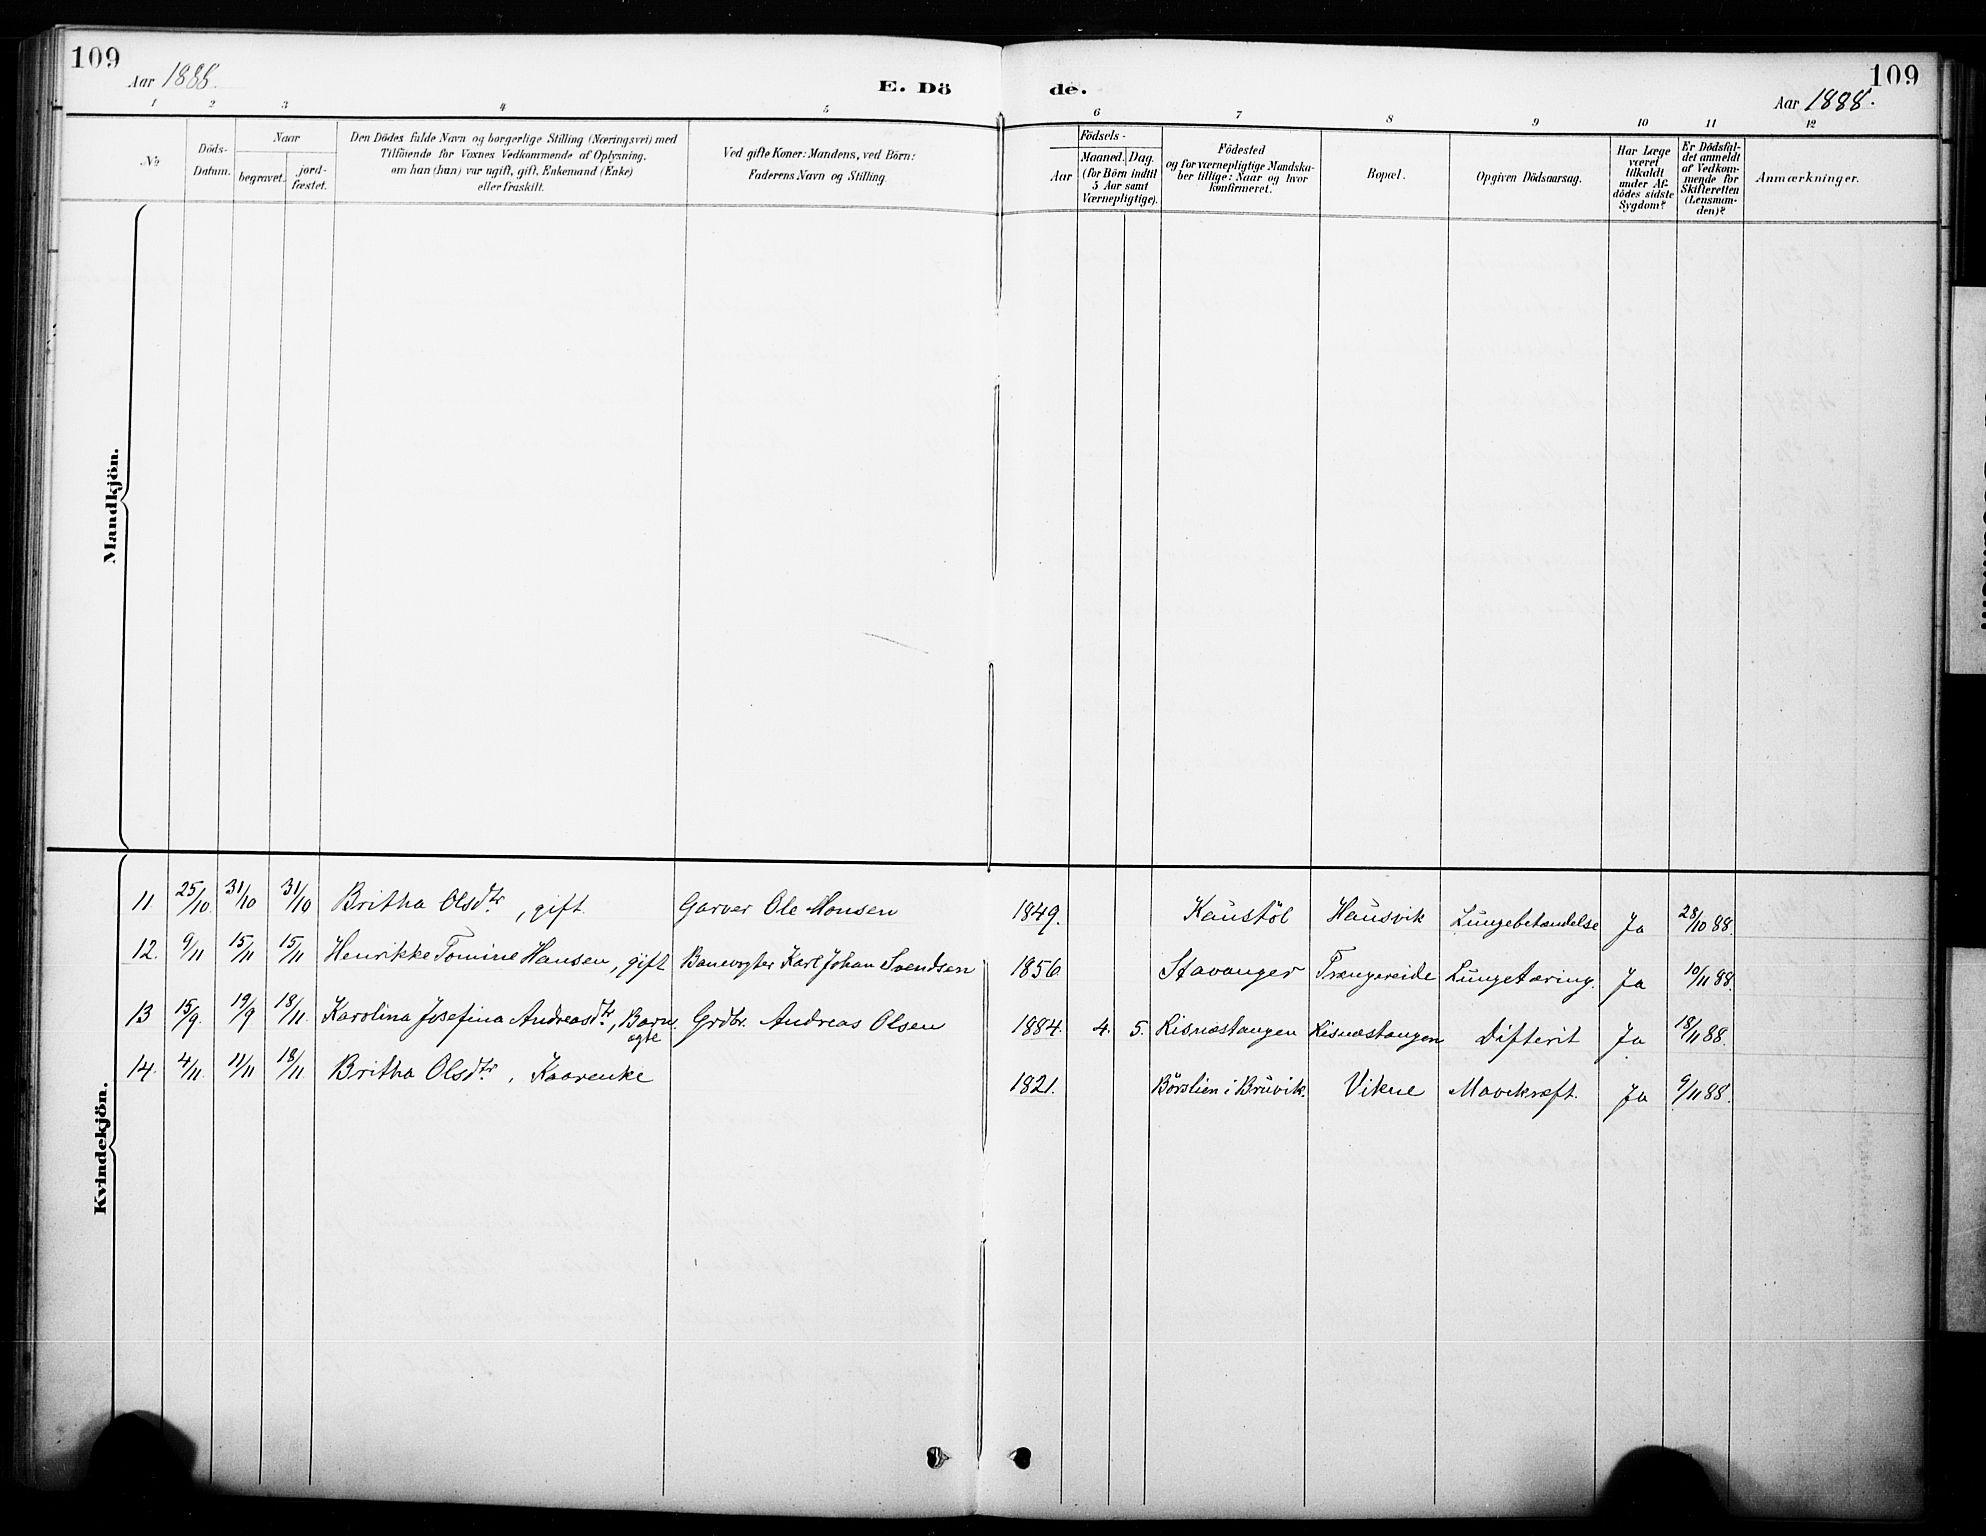 109
Aar 1888.
E. Dö
de.
109
Aar 1888.
1 2 3 4 5 6 7 8 9 10 11 12
No
Döds-
Datum.
Naar
begravet.
jord-
fæstet.
Den Dödes fulde Navn og borgerlige Stilling (Næringsvei) med
Tilföiende for Voxnes Vedkommende af Oplysning,
om han (hun) var ugift, gift, Enkemand (Enke)
eller fraskilt.
Ved gifte Koner: Mandens, ved Börn:
Faderens Navn og Stilling
Födsels-
Aar
Maaned. Dag.
(for Börn indtil
5 Aar samt
Værnepligtige).
Födested
og for værnepligtige Mandska-
ber tillige: Naar og hvor
konfirmeret.
Bopæl.
Opgiven Dödsaarsag.
Har Læge
været
tilkaldt
under Af-
dödes sidste
Sygdom?
Er Dödsfal-
det anmeldt
af Vedkom-
mende for
Skifteretten
(Lensman-
den)?
Anmærkninger.
Mandkjön.
Kvindekjön.
11 25/10 31/10 31/10 Britha Olsdtr, gift. Garver Ole Monsen 1849. Kaustöl Hausvik Lungebetændelse Ja 28/10 88.
12. 9/11 15/11 15/11 Henrikke Tomine Hansen, gift Banevogter Karl Johan Svendsen 1856 Stavanger Trængereide Lungetæring. Ja 10/11 88.
13 15/9. 19/9 18/11. Karolina Josefina Andreasdtr., Barn. Grdbr. Andreas Olsen 1884. 4. 5. Risnæstangen Risnæstangen Difterit Ja 18/11 88.
ægte
14. 4/11. 11/11 18/11. Britha Olsdtr., Kaarenke 1821. Börslien i Bruvik. Vikne Mavekræft. Ja 9/11 88.